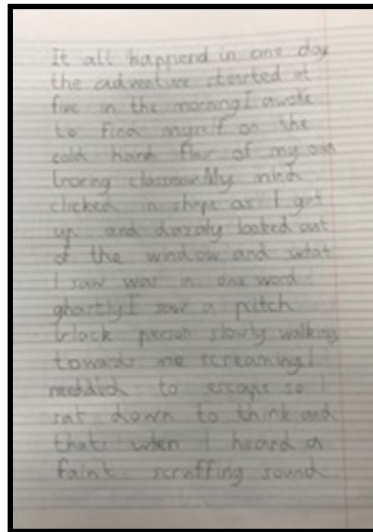 It all happend in one day
the adventure started at
five in the morning I awoke
to find myself on the
cold hard flor of my own
boring classroom My mind
clicked in shape as I got
up and dazaly looked out
of the window and what
I saw was in one word
ghastly I saw a pitch
black person slowly walking
towards me screaming I
nedded to escape so I
sat down to think and
thats when I heard a
faint scruffing sound